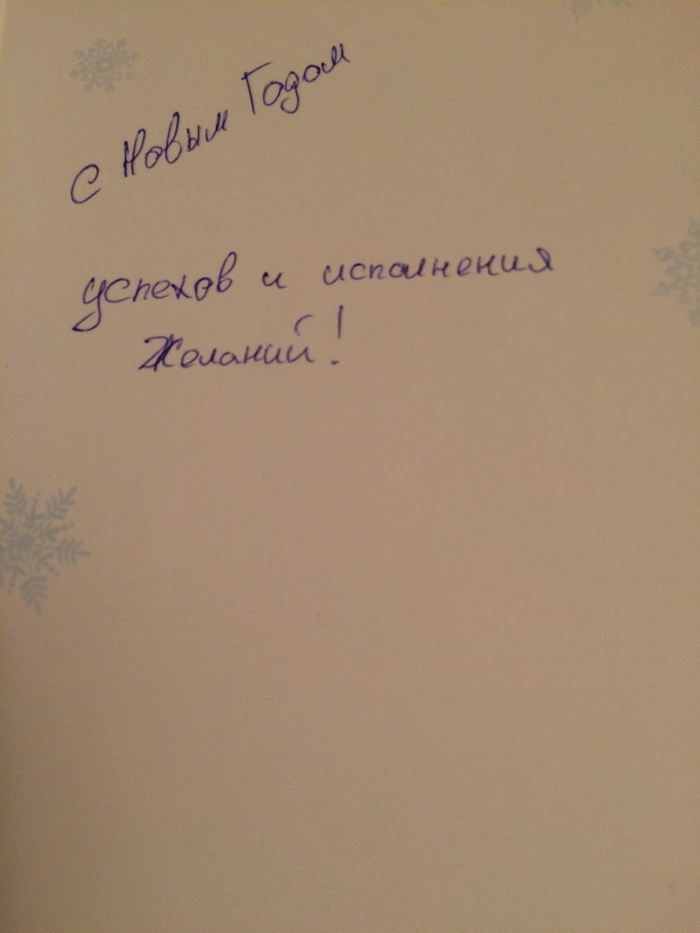 С Новым Годом
успехов и исполнения
Желаний!